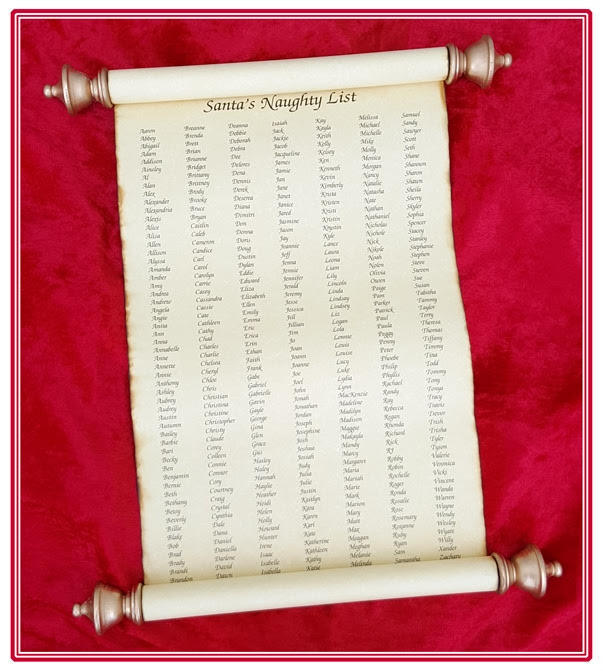 Santa's Naughty List
Aaron
Abbey
Abigail
Adam
Addison
Ainsley
Al
Alan
Alex
Alexander
Alexandria
Alexis
Alice
Alisa
Allen
Allison
Alyssa
Amanda
Amber
Amy
Andrea
Andrew
Angela
Angie
Anita
Ann
Anna
Annabelle
Anne
Annette
Annie
Anthony
Ashley
Aubrey
Audrey
Austin
Autumn
Bailey
Barbie
Bari
Becky
Ben
Benjamin
Bernie
Beth
Bethany
Betsy
Beverly
Billie
Blake
Bob
Brad
Brady
Brandi
Brandon
Breanne
Brenda
Brett
Brian
Brianne
Bridget
Brittany
Britney
Brody
Brooke
Bruce
Bryan
Caitlin
Caleb
Cameron
Candice
Carl
Carol
Carolyn
Carrie
Casey
Cassandra
Cassie
Cate
Cathleen
Cathy
Chad
Charles
Charlie
Chelsea
Cheryl
Chloe
Chris
Christian
Christina
Christine
Christopher
Christy
Claude
Colleen
Connie
Connor
Cory
Courtney
Craig
Crystal
Cynthia
Dale
Dana
Daniel
Daniella
Darlene
David
Dawn
Deanna
Debbie
Deborah
Debra
Dee
Delores
Dena
Dennis
Derek
Deserea
Diana
Dimitri
Don
Donna
Doris
Doug
Dustin
Dylan
Eddie
Edward
Eliza
Elizabeth
Ellen
Emily
Emma
Eric
Erica
Erin
Ethan
Faith
Frank
Gabe
Gabriel
Gabrielle
Gavin
Gayle
George
Gina
Glen
Grace
Gus
Hailey
Haley
Hannah
Haylie
Heather
Heidi
Helen
Holly
Howard
Hunter
Irene
Isaac
Isabelle
Isabella
Isaiah
Jack
Jackie
Jacob
Jacqueline
James
Jamie
Jan
Jane
Janet
Janice
Jared
Jasmine
Jason
Jay
Jeannie
Jeff
Jenna
Jennie
Jennifer
Jerald
Jeremy
Jesse
Jessica
Jill
Jillian
Jim
Jo
Joan
Joann
Joanne
Joe
Joel
John
Jonah
Jonathan
Jordan
Joseph
Josephine
Josh
Joshua
Josiah
Judy
Julia
Julie
Justin
Kaitlyn
Kara
Karen
Karl
Kate
Katherine
Kathleen
Kathy
Katie
Kay
Kayla
Keith
Kelly
Kelsey
Ken
Kenneth
Kevin
Kimberly
Krista
Kristen
Kristi
Kristin
Krystin
Kyle
Lance
Laura
Leona
Liam
Lily
Lincoln
Linda
Lindsay
Lindsey
Liz
Logan
Lola
Lonnie
Louis
Louise
Lucy
Luke
Lydia
Lynn
MacKenzie
Madeline
Madilyn
Madison
Maggie
Makayla
Mandy
Marcy
Margaret
Maria
Mariah
Marie
Mark
Marion
Mary
Matt
Max
Meagan
Meghan
Melanie
Melinda
Melissa
Michael
Michelle
Mike
Molly
Monica
Morgan
Nancy
Natalie
Natasha
Nate
Nathan
Nathaniel
Nicholas
Nichole
Nick
Nikole
Noah
Nolen
Olivia
Paige
Pam
Parker
Patrick
Paul
Paula
Peggy
Penny
Peter
Phoebe
Philip
Phyllis
Rachael
Randy
Ray
Rebecca
Rhonda
Richard
Rick
RJ
Robby
Robin
Rochelle
Roger
Ronda
Rosalie
Rose
Rosemary
Roxanne
Ruby
Ryan
Sam
Samantha
Samuel
Sandy
Sawyer
Scott
Seth
Shane
Shannon
Sharon
Shawn
Sheila
Sherry
Skyler
Sophia
Spencer
Stacey
Stanley
Stephanie
Stephen
Steve
Steven
Sue
Susan
Tabitha
Tammy
Taylor
Terry
Theresa
Thomas
Tiffany
Timmy
Tina
Todd
Tommy
Tony
Tonya
Tracy
Travis
Trevor
Trish
Trisha
Tyler
Tyson
Valerie
Veronica
Vicki
Vincent
Wanda
Warren
Wayne
Wendy
Wesley
Wyatt
Willy
Xander
Zachary